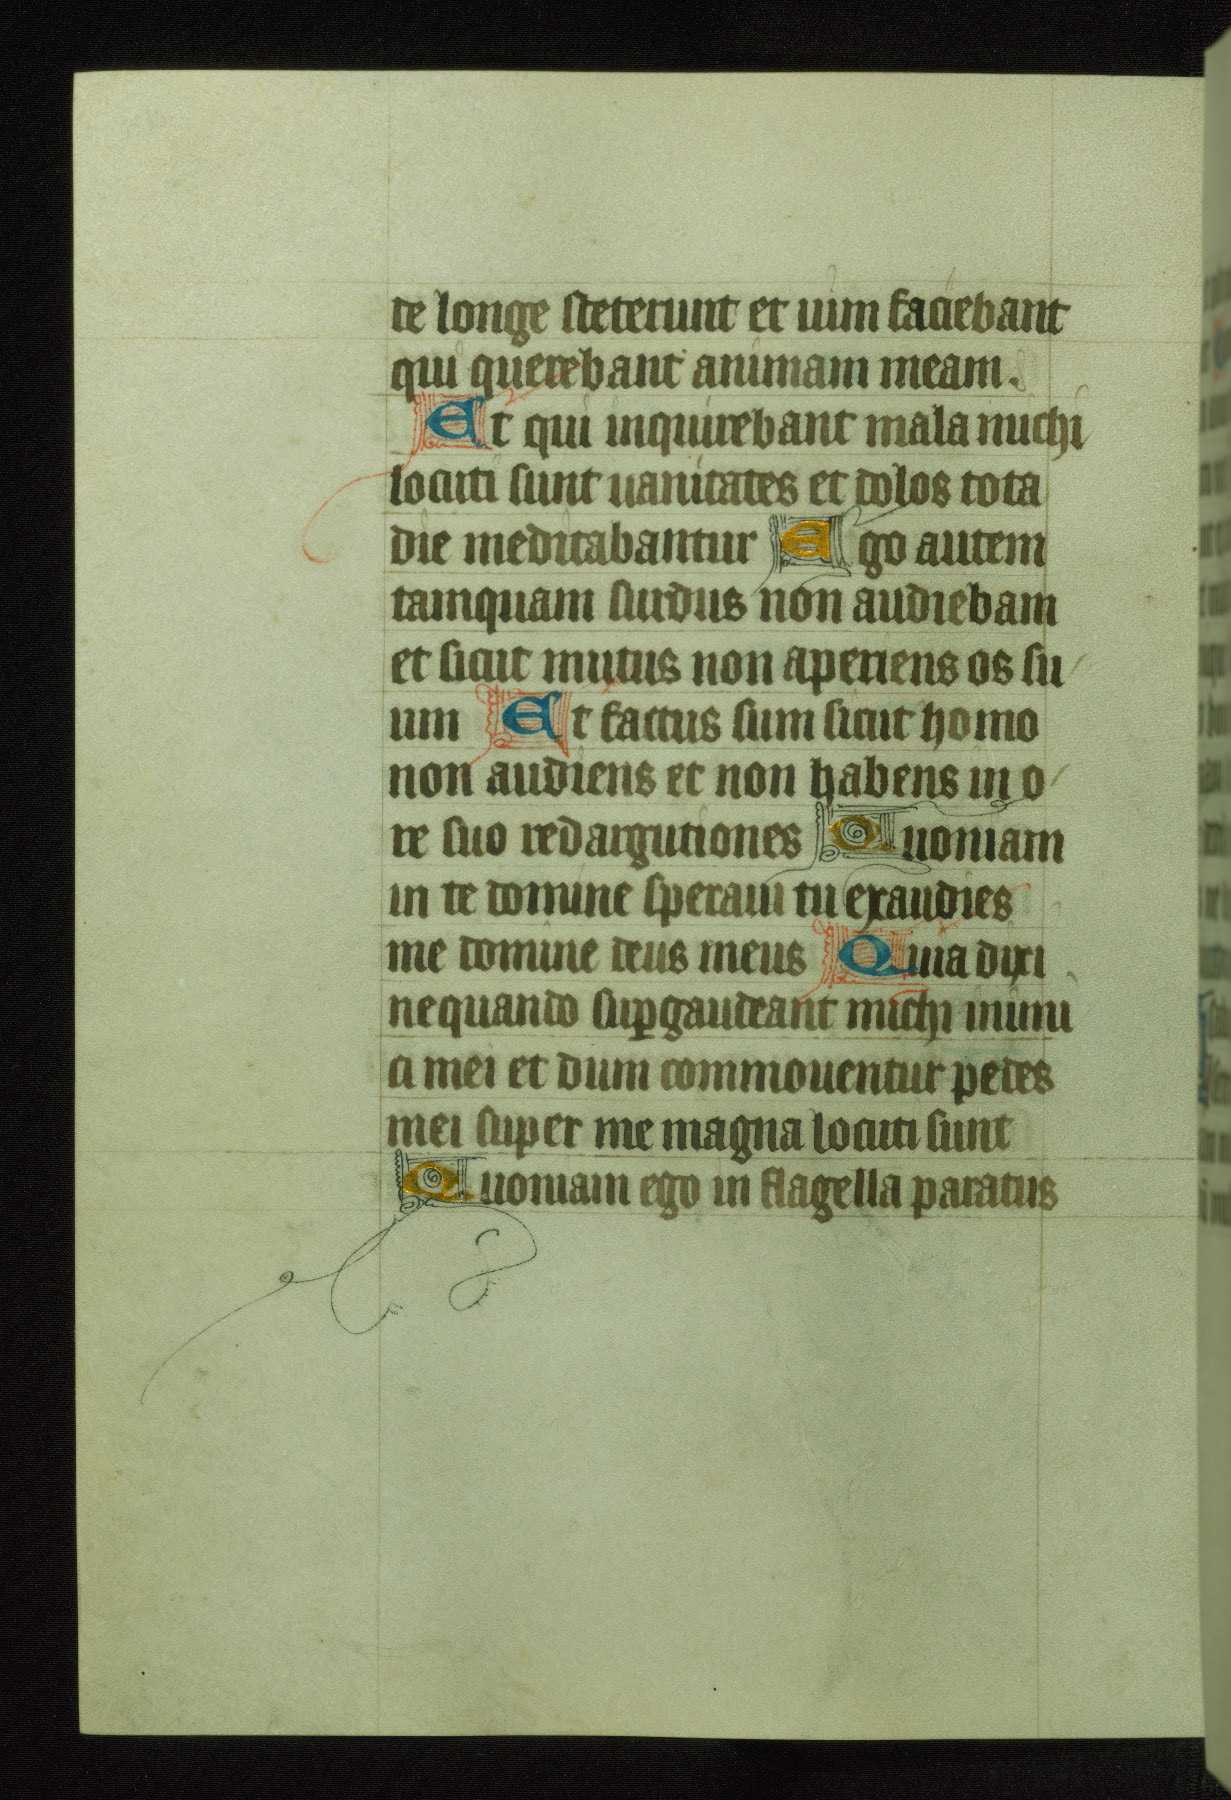 de longe steterunt et uim faciebant
qui querebant animam meam.
Et qui inquirebant mala michi
locuti sunt uanitates et dolos tota
die meditabantur Ego autem
tamquam surdus non audiebam
et sicut mutus non aperiens os su
um Et factus sum sicut homo
non audiens et non habens in o
re suo redargutiones Quoniam
in te domine speraui tu exaudies
me domine deus meus Quia dixi
nequando suꝑgaudeant michi inimi
ci mei et dum commouentur pedes
mei super me magna locuti sunt
Quoniam ego in flagella paratus